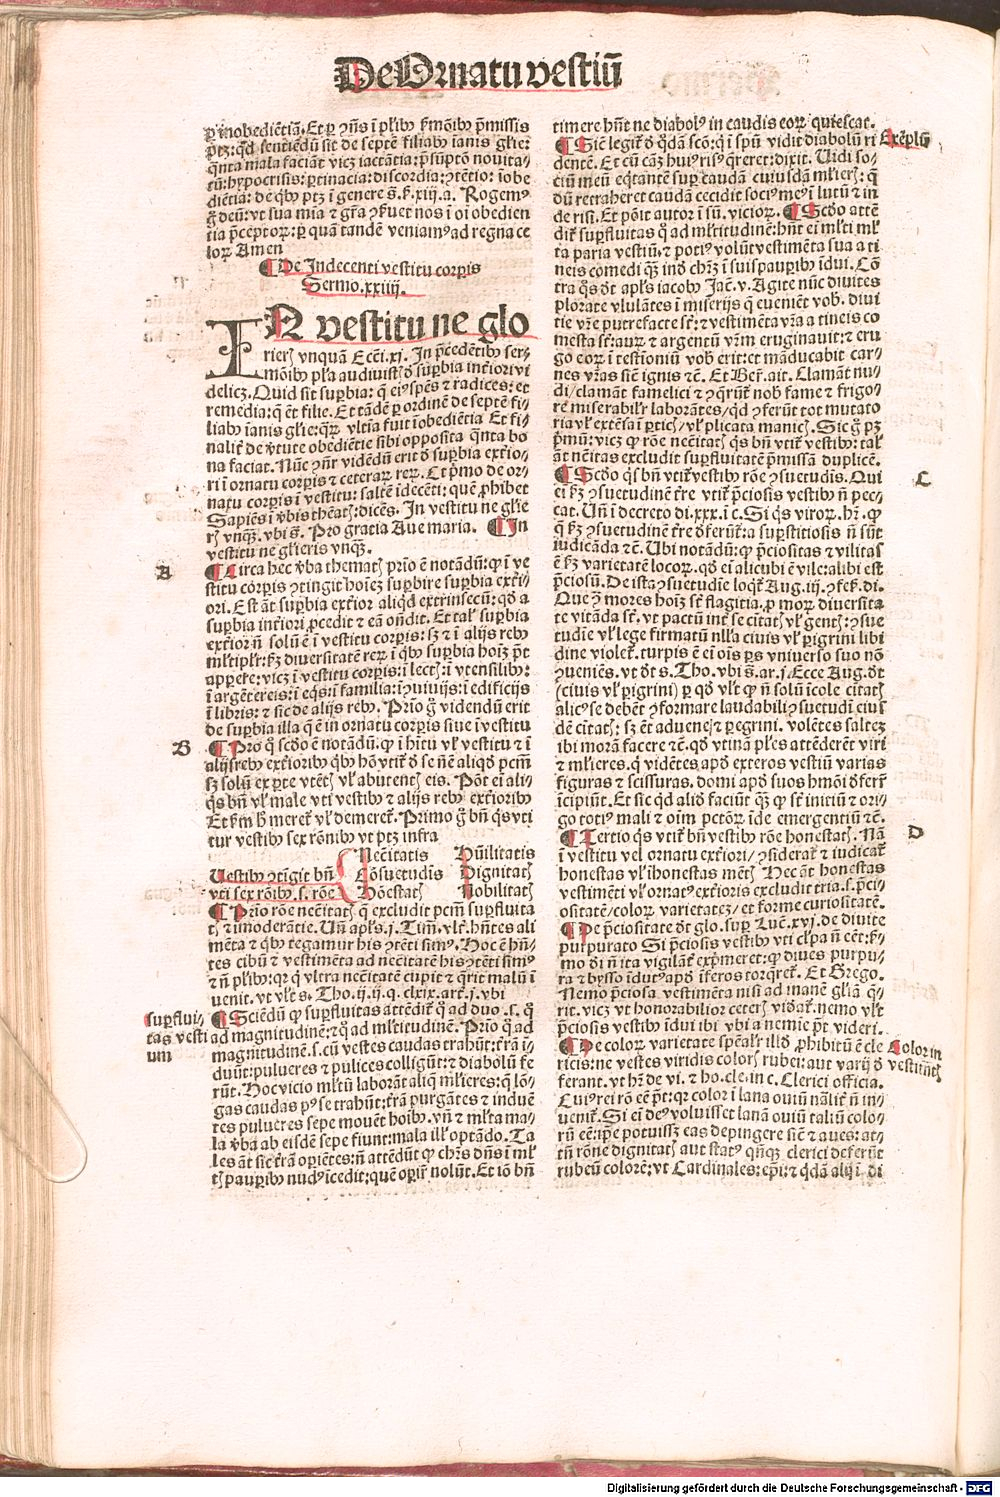 De Ornatu vestiū
p̱ inobediētiā. Et p̱ ↄñs ī pl̄ibꝰ s̓mōibꝰ p̄missis
ptꝫ: qd̓ sentiēdū sit de septē filiabꝰ ianis gl̄ie:
qn̄ta mala faciāt vicꝫ iactātia: p̄sūptōn nouita-
tū: hypocrisis: p̱tinacia: discordia: ↄtētio: īobe
diētia: de qͥbꝰ ptꝫ ī genere s. s̓. xiij. a. Rogemꝰ
g̊ deū: vt sua mīa ⁊ gr̄a ↄs̓uet nos ī oī obedien
tia p̄ceptoꝝ: p̱ quā tandē veniamꝰ ad regna ce
loꝝ Amen
¶ De Indecenti vestitu corp̱is
Sermo. xxiiij.
IN vestitu ne glo
rieris vnquā Ecc̄i. xj. In p̄cedētibꝰ ser-
mōibꝰ pl̄a audiuistis d̓ suꝑbia inf̓iori vi
delicꝫ. Quid sit suꝑbia: q̄ eiꝰ sp̄es ⁊ radices: et
remedia: q̄ ēt filie. Et tādē p̱ ordinē de septē fi-
liabꝰ ianis gl̄ie: qͣꝝ vl̄tīa fuit īobediētia Et fi-
nalit̓ de v̓tute obediētie sibi opposita qn̄ta bo
na faciat. Nūc ↄn̄r vidēdū erit d̓ suꝑbia ext̓io-
ri ī ornatu corp̱is ⁊ ceteraꝝ reꝝ. Et pͥmo de or-
natu corp̱is ī vestitu: saltē īdecēti: quē ꝓhibet
Sapiēs ī v̓bis thēatis: dicēs. In vestitu ne glie
ris vnqͣ. vbi s̓. Pro gratia Aue maria. ¶ In
vestitu ne gl̄ieris vnqͣ.
A
¶ Circa hec v̓ba thematis prīo ē notādū: ꝙ ī ve
stitu corp̱is ↄtingit hoīeꝫ suꝑbire suꝑbia ext̓i
ori. Est āt suꝑbia ext̓ior aliqd̓ extrinsecū: qd̓ a
suꝑbia inf̓iori ꝓcedit ⁊ eā on̄dit. Et tal̓ suꝑbia
ext̓ior n̄ solū ē ī vestitu corp̱is: sꝫ ⁊ ī alijs rebꝰ
ml̓tipl̓r: s̓ꝫ diuersitatē reꝝ ī qͥbꝰ suꝑbia hoīs p̄t
apparēre: vicꝫ ī vestitu corp̱is: ī lectis: ī vtensilibꝰ:
ī argētereis: ī eqͥs: ī familia: ī ↄuiuijs: ī edificijs
ī libris: ⁊ sic de alijs rebꝰ. Prīo g̊ videndū erit
de suꝑbia illa q̄ ē in ornatu corp̱is siue ī vestitu
B
¶ Prīo g̊ scd̓o ē notādū. ꝙ ī hītu vl̓ vestitu ⁊ ī
alijs rebꝰ ext̓ioribꝰ qͥbꝰ hō vtit̓ d̓ se nē aliqd̓ pctm̄
sꝫ solū ex p̱te vtētis vl̓ abutentis eis. Pōt ei ali-
qͥs bn̄ vl̓ male vti vestibꝰ ⁊ alijs rebꝰ ext̓ioribꝰ
Et s̓m h̓ meret̓ vl̓ demeret̓. Primo g̊ bn̄ qͥs vti
tur vestibꝰ sex rōnibꝰ vt ptꝫ infra
Vestibꝰ ↄtīgit bn̄
vti sex rōibꝰ. s. rōe
Nec̄itatis
Cōsuetudis
Hōestatis
Hūilitatis
Dignitatis
Nobilitatis
¶ Prīo rōe nec̄itatis q̄ excludit pctm̄ suꝑfluita
tis ⁊ īmoderātie. Un̄ apl̓s. j. Tim̄. vl̓t. hn̄tes ali
mēta ⁊ qͥbꝰ tegamur his ↄtēti simꝰ. Hoc ē hn̄-
tes cibū ⁊ vestimēta ad nec̄itatē his ↄtēti simꝰ
⁊ n̄ pl̄ibꝰ: qꝛ q̄ vl̓tra nec̄itatē cupit ⁊ q̄rit malū ī
uenit. vt vl̓t s. Tho. ij. ij. q. clxix. art̓. j. vbi
Suꝑflui-
tas vesti
um
¶ Sciēdū ꝙ suꝑfluitas attēdit̓ q̊ ad duo. s. q̊
ad magnitudinē: ⁊ q̊ ad ml̓titudinē. Prīo q̊ ad
magnitudinē. s. cū vestes caudas trahūt: t̓rā ī-
duūt: pulueres ⁊ pulices colligūt: ⁊ diabolū fe
rūt. Hoc vicio ml̓tū laborāt aliq̄ ml̓ieres: q̄ lō-
gas caudas pꝰ se trahūt: t̓rā purgātes ⁊ induē
tes pulueres sepe mouēt hoībꝰ. vn̄ ⁊ ml̓ta ma-
la v̓ba ab eisdē sepe fiunt: mala ill̓ optādo. Ta
les āt sic t̓rā oꝑiētes: n̄ attēdūt ꝙ chrs̄ dn̄s ī ml̓
tis paup̱ibꝰ nudꝰ īcedit: que oꝑir̓ nolūt. Et iō bn̄
timere hn̄t ne diabolꝰ in caudis eoꝝ quiescat.
Exēplū
¶ Sic legit̓ d̓ qd̓ā scō: q̄ ī spū vidit diabolū ri
dentē. Et cū cāꝫ huiꝰ risꝰ q̄reret: dixit. Uidi so-
ciū meū eqͥtantē suꝑ caudā cuiusdā ml̓ieris: q̄
dū retraheret caudā cecidit sociꝰ meꝰ ī lutū ⁊ in
de risi. Et pōit autor ī sū. vicioꝝ. ¶ Scd̓o attē
dit̓ suꝑfluitas q̊ ad ml̓titudinē: hn̄t ei ml̓ti ml̓
ta paria vestiū. ⁊ potiꝰ volūt vestimēta sua a ti
neis comedi qͣꝫ īnd̓ chrm̄ ī suis paup̱ibꝰ īdui. Cō
tra qͦs dt̓ apl̓s iacobꝰ Jac̄. v. Agite nūc diuites
plorate vlulātes ī miserijs q̄ eueniēt vob̓. diui
tie vr̄e putrefacte st̓: ⁊ vestimēta vr̄a a tineis co
mesta st̓: auꝝ ⁊ argentū vr̄m eruginauit: ⁊ eru
go eoꝝ ī testioniū vob̓ erit: et māducabit car-
nes vr̄as sic̄ ignis ⁊c̄. Et Ber̓. ait. Clamāt nu-
di/ clamāt famelici ⁊ ↄqͥrūt̓ nob̓ fame ⁊ frigo-
re miserabil̓r laborātes/ qd̓ ↄferūt tot mutato
ria vl̓ extēsa ī p̱ticis/ vl̓ plicata manicis. Sic g̊ pꝫ
pͥmū: vicꝫ ꝙ rōe nec̄itatis qͥs bn̄ vtit̓ vestibꝰ: tal̓
āt nēitas excludit suꝑfluitatē p̄missā duplicē.
C
¶ Scd̓o qͥs bn̄ vtit̓ vestibꝰ rōe ↄsuetudis. Qui
ei s̓ꝫ ↄsuetudinē t̓re vtit̓ p̄ciosis vestibꝰ n̄ pec-
cat. Un̄ ī decreto di. xxx. ī c̄. Si qͥs viroꝝ. hr̄. ꝙ
q̄ s̓ꝫ ↄsuetudinē t̓re d̓ferūt̓: a suꝑstitiosis n̄ sūt
iudicāda ⁊c̄. Ubi notādū: ꝙ p̄ciositas ⁊ vilitas
ē s̓ꝫ varietatē locoꝝ. qd̓ ei alicubi ē vile: alibi est
p̄ciosū. De ista ↄsuetudīe loqͥt̓ Aug. iij. ↄfes̓. di.
Que ↄ̄ mores hoīs st̓ flagitia. ꝓ moꝝ diuersita
te vitāda st̓. vt pactū int̓ se citatis vl̓ gentis: ↄsue
tudīe vl̓ lege firmatū nl̓la ciuis vl̓ p̱igrini libi
dine violet̓. turpis ē ei oīs p̱s vniuerso suo nō
ↄueniēs. vt dt̓ s. Tho. vbi s̓. ar. j. Ecce Aug. dt̓
(ciuis vl̓ p̱igrini) p̱ qd̓ vl̓t ꝙ n̄ solū īcole citatis
alicꝰ se debēt ↄformare laudabili ↄsuetudi eiꝰ
dē citatis: sꝫ ēt adueneⱼ ⁊ p̱egrini. volētes saltꝫ
ibi morā facere ⁊c̄. qd̓ vtinā pl̓es attēderēt viri
⁊ ml̓ieres. q̄ vidētes apd̓ exteros vestiū varias
figuras ⁊ scissuras. domi apd̓ suos hmōi d̓ferr̓
īcipiūt. Et sic qd̓ aliō faciūt qͣꝫ ꝙ st̓ initiū ⁊ ori-
go totiꝰ mali ⁊ oīm pctōꝝ īde emergentiū ⁊c̄.
D
¶ Tertio qͥs vtit̓ bn̄ vestibꝰ rōe honestatis. Nā
ī vestitu vel ornatu ext̓iori/ ↄsiderat̓ ⁊ indicat̓
honestas vl̓ ihonestas mētis Hec āt honestas
vestimēti vl̓ ornatꝰ ext̓ioris excludit tria. s. p̄ci-
ositatē/ coloꝝ varietateꝫ/ et forme curiositatē.
¶ De p̄ciositate dt̓ glo. suꝑ Luc̄. xvj. de diuite
purpurato Si p̄ciosis vestibꝰ vti cl̓pa n̄ eēt: s̓-
mo di n̄ ita vigilāt̓ exp̄meret: ꝙ diues purpu-
ra ⁊ bysso īdutꝰ apd̓ īferos torqͣret̓. Et Grego.
Nemo p̄ciosa vestimēta nisi ad inanē gl̄iā q̄-
rit. vicꝫ vt honorabilior ceteris vid̓at̓. nemo vl̓t
p̄ciosis vestibꝰ īdui ibi vbi a nemīe p̄t videri.
Coloꝝ in
vestiūtis
¶ De coloꝝ varietate sp̄al̓r illd̓ ꝓhibitū ē cle
ricis: ne vestes viridis coloris rubei: aut varij d̓
ferant. vt hr̄ de vi. ⁊ ho. cle. in c. Clerici officia.
Cuiꝰ rei rō eē p̄t: qꝛ color ī lana ouiū nāl̓it̓ n̄ in-
uenit̓. Si ei deꝰ voluisset lanā ouiū taliū colo-
rū eē: ip̄e potuissꝫ eas depingere sic̄ ⁊ aues: at-
tn̄ rōne dignitatis aut statꝰ qn̄qꝫ clerici deferūt
rubeū colorē: vt Cardinales: ep̄i: ⁊ qd̓ā alij ī di
Digitalisierung gefördert durch die Deutsche Forschungsgemeinschaft - DFG